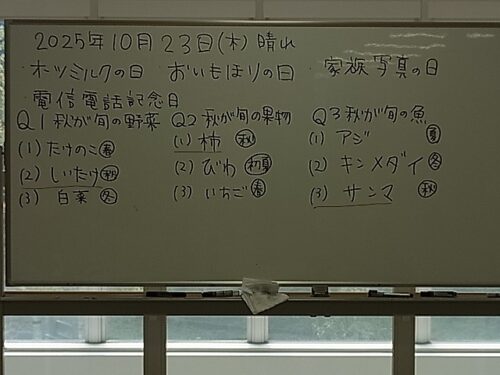 2025年10月23日(木)晴れ
・ホットミルクの日 おいもほりの日 ・家族写真の日
・電信電話記念日
Q1秋が旬の野菜 Q2秋が旬の果物 Q3秋が旬の魚
(1)たけのこ春 (1)柿 秋 (1)アジ 夏
(2)しいたけ秋 (2)びわ 初夏 (2)キンメダイ 冬
(3)白菜 冬 (3)いちご春 (3)サンマ 秋